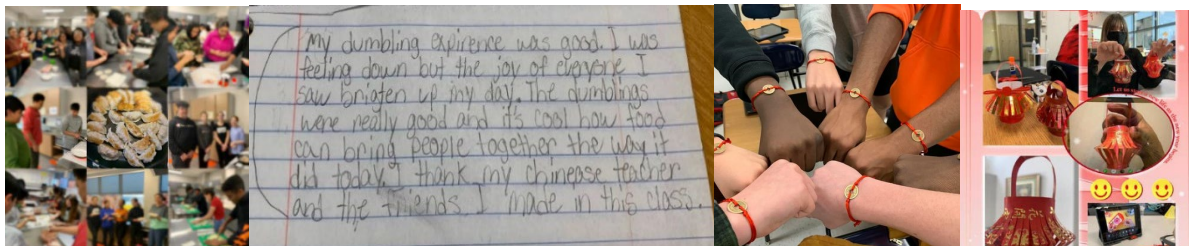 My dumbling expirence was good. I was
feeling down but the joy of everyone I
saw brigten up my day. The dumblings
were really good and it's cool how food
can bring people together the way it
did today. I thank my chinease teacher
and the friends I made in this class.